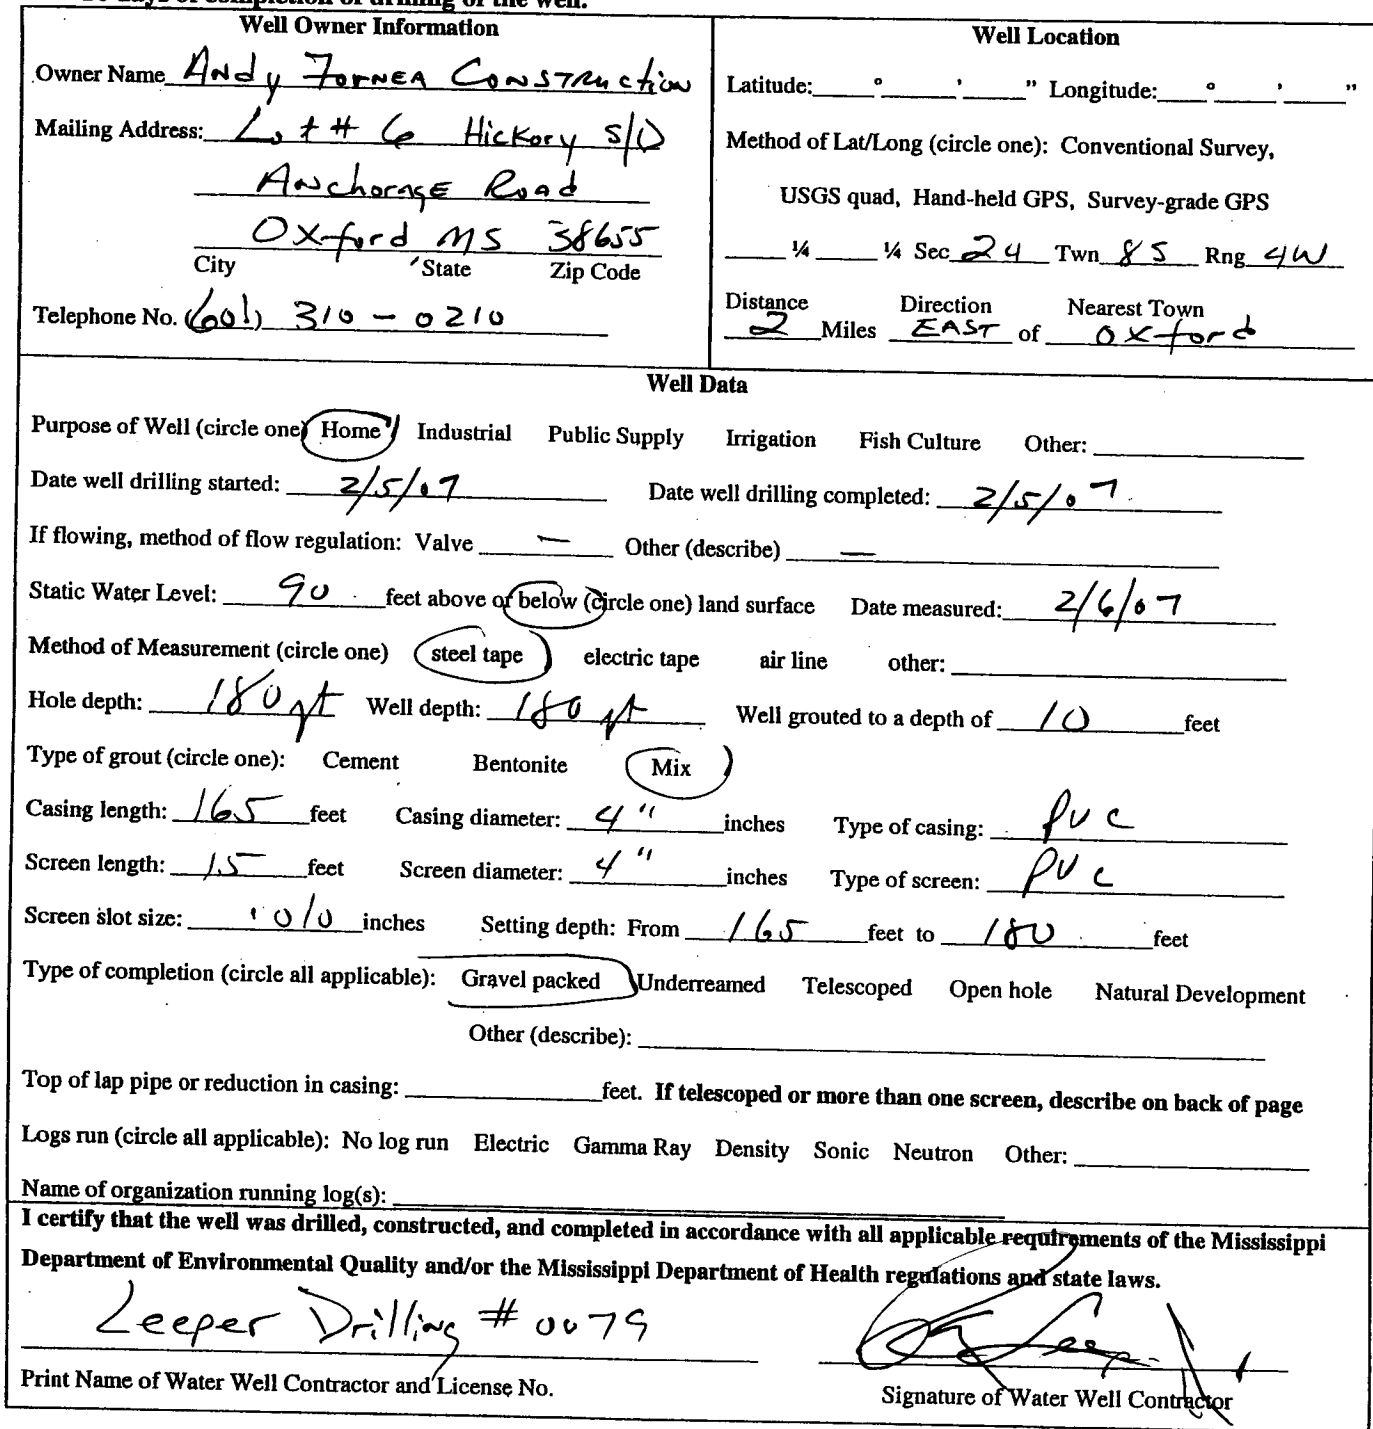 days of completion of drilling of the well.
Well Owner Information
Owner Name Andy Fornea Construction
Mailing Address: Lot # 6 Hickory S/D
Anchorage Road
Oxford MS 38655
City State Zip Code
Telephone No. (601) 310 - 0210
Well Location
Latitude: ° ' " Longitude: ° ' "
Method of Lat/Long (circle one): Conventional Survey,
USGS quad, Hand-held GPS, Survey-grade GPS
¼ ¼ Sec 24 Twn 8S Rng 4W
Distance Direction Nearest Town
2 Miles EAST of Oxford
Well Data
Purpose of Well (circle one) Home Industrial Public Supply Irrigation Fish Culture Other:
Date well drilling started: 2/5/07 Date well drilling completed: 2/5/07
If flowing, method of flow regulation: Valve — Other (describe) —
Static Water Level: 90 feet above or below (circle one) land surface Date measured: 2/6/07
Method of Measurement (circle one) steel tape electric tape air line other:
Hole depth: 180 ft Well depth: 180 ft Well grouted to a depth of 10 feet
Type of grout (circle one): Cement Bentonite Mix
Casing length: 165 feet Casing diameter: 4" inches Type of casing: PVC
Screen length: 15 feet Screen diameter: 4" inches Type of screen: PVC
Screen slot size: .010 inches Setting depth: From 165 feet to 180 feet
Type of completion (circle all applicable): Gravel packed Underreamed Telescoped Open hole Natural Development
Other (describe):
Top of lap pipe or reduction in casing: feet. If telescoped or more than one screen, describe on back of page
Logs run (circle all applicable): No log run Electric Gamma Ray Density Sonic Neutron Other:
Name of organization running log(s):
I certify that the well was drilled, constructed, and completed in accordance with all applicable requirements of the Mississippi
Department of Environmental Quality and/or the Mississippi Department of Health regulations and state laws.
Leeper Drilling # 0079
Print Name of Water Well Contractor and License No.
Signature of Water Well Contractor